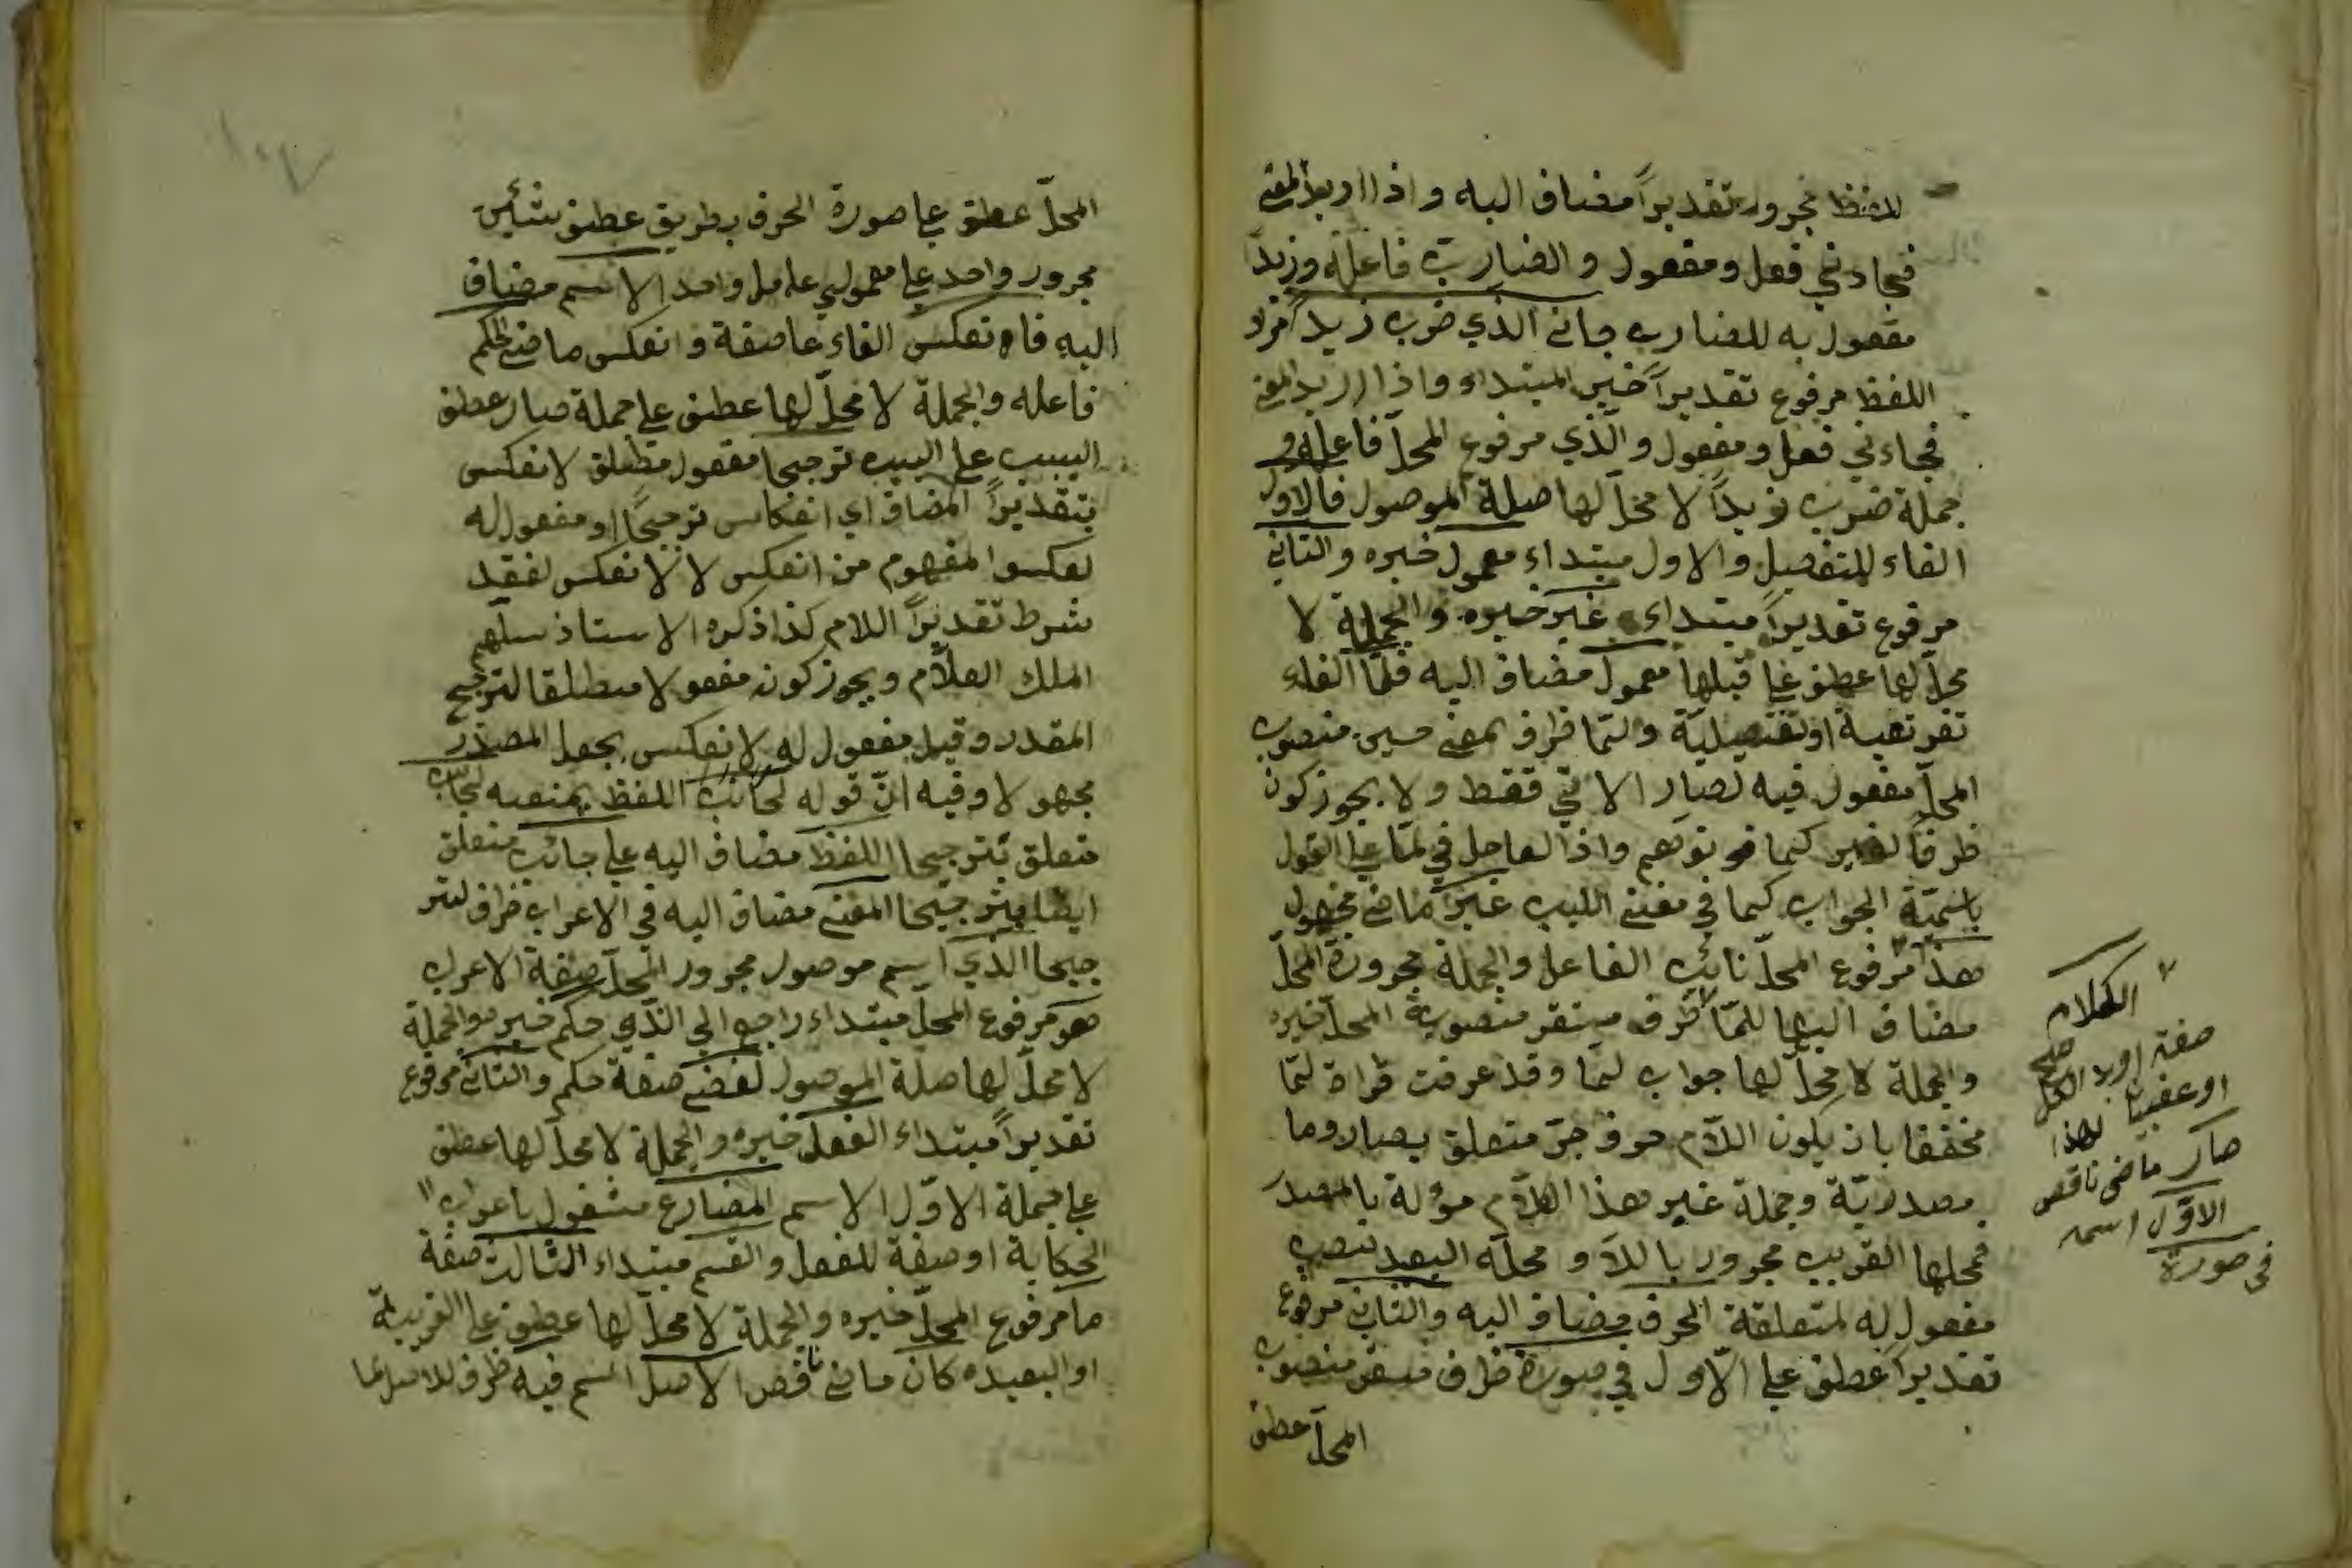 اللفظ مجرور تقديراً مضاف اليه واذا اريد المعنى
فجاءني فعل ومفعول والضارب فاعله وزيداً
مفعول به للضارب جاءني الذي ضرب زيداً مراد
اللفظ مرفوع تقديراً خبر المبتداء واذا اريد المعنى
فجاءني فعل ومفعول والّذي مرفوع المحلّ فاعله و
جملة ضرب زيداً لا محلّ لها صلة الموصول فالاول
الفاء للتفصيل والاول مبتداء معمول خبره والثاني
مرفوع تقديراً مبتداء غير خبره والجملة لا
محلّ لها عطف على قبلها معمول مضاف اليه فلمّا الفاء
تفريعية او تفصيلية ولمّا ظرف بمعنى حين منصوب
المحلّ مفعول فيه لصار الآتي فقط ولا يجوز كون
ظرفاً لغير كما توهم واذا العامل في لمّا على القول
باسميّة الجواب كما في مغني اللبيب غير ماضي مجهول
هذا مرفوع المحلّ نائب الفاعل والجملة مجرورة المحلّ
مضاف اليها للمّا ظرف مستقر منصوبة المحلّ خبره
والجملة لا محلّ لها جواب لمّا وقد عرفت قراءة لمّا
مخففا بان يكون اللّام حرف جرّ متعلق بصار وما
مصدريّة وجملة غير هذا الكلام مؤلة بالمصدر
فمحلها القريب مجرور باللّام ومحله البعيد نصب
مفعول له لمتعلقة الحرف مضاف اليه والثاني مرفوع
تقديراً عطف على الاول في صورة ظرف مستقر منصوب
المحلّ عطف
الكلام
صفته او بدل الكل
صح
او عطف بيان لهذا
صار ماضى ناقص
الاوّل اسمه
فى صورة
المحلّ عطف على صورة الحرف بطريق عطف شئين
مجرور واحد على معمولي عامل واحد الاسم مضاف
اليه فانعكس الفاء عاطفة وانعكس ماضي الحكم
فاعله والجملة لا محلّ لها عطف على جملة صار عطف
السبب على السبب ترجيحا مفعول مطلق لانعكس
بتقدير المضاف اي انعكاس ترجيحاً او مفعول له
لعكسوا المفهوم من انعكس لا لانعكس لفقد
شرط تقدير اللام كذا ذكره الاستاذ سلّمهم
الملك العلّام ويجوز كونه مفعولا مطلقا لترجيح
المقدر وقيل مفعول له لانعكس بجعل المصدر
مجهولا وفيه انّ قوله لجانب اللفظ يمنعه لجانب
متعلق بترجيحا اللفظ مضاف اليه على جانب متعلق
ايضا بترجيحا المعنى مضاف اليه في الاعراب ظرف لتر
جيحا الّذي اسم موصول مجرور المحلّ صفة الاعراب
هو مرفوع المحلّ مبتداء راجع الى الّذي حكم خبر هو والجملة
لا محلّ لها صلة الموصول لفظي صفة حكم والثاني مرفوع
تقديراً مبتداء الفعل خبره والجملة لا محلّ لها عطف
على جملة الاوّل الاسم المضارع مشغول باعراب
الحكاية او صفة للفعل والقسم مبتداء الثالث صفة
ما مرفوع المحلّ خبره والجملة لا محلّ لها عطف على القريبة
او البعيده كان ماضي ناقص الاصل اسم فيه ظرف للاصل ما